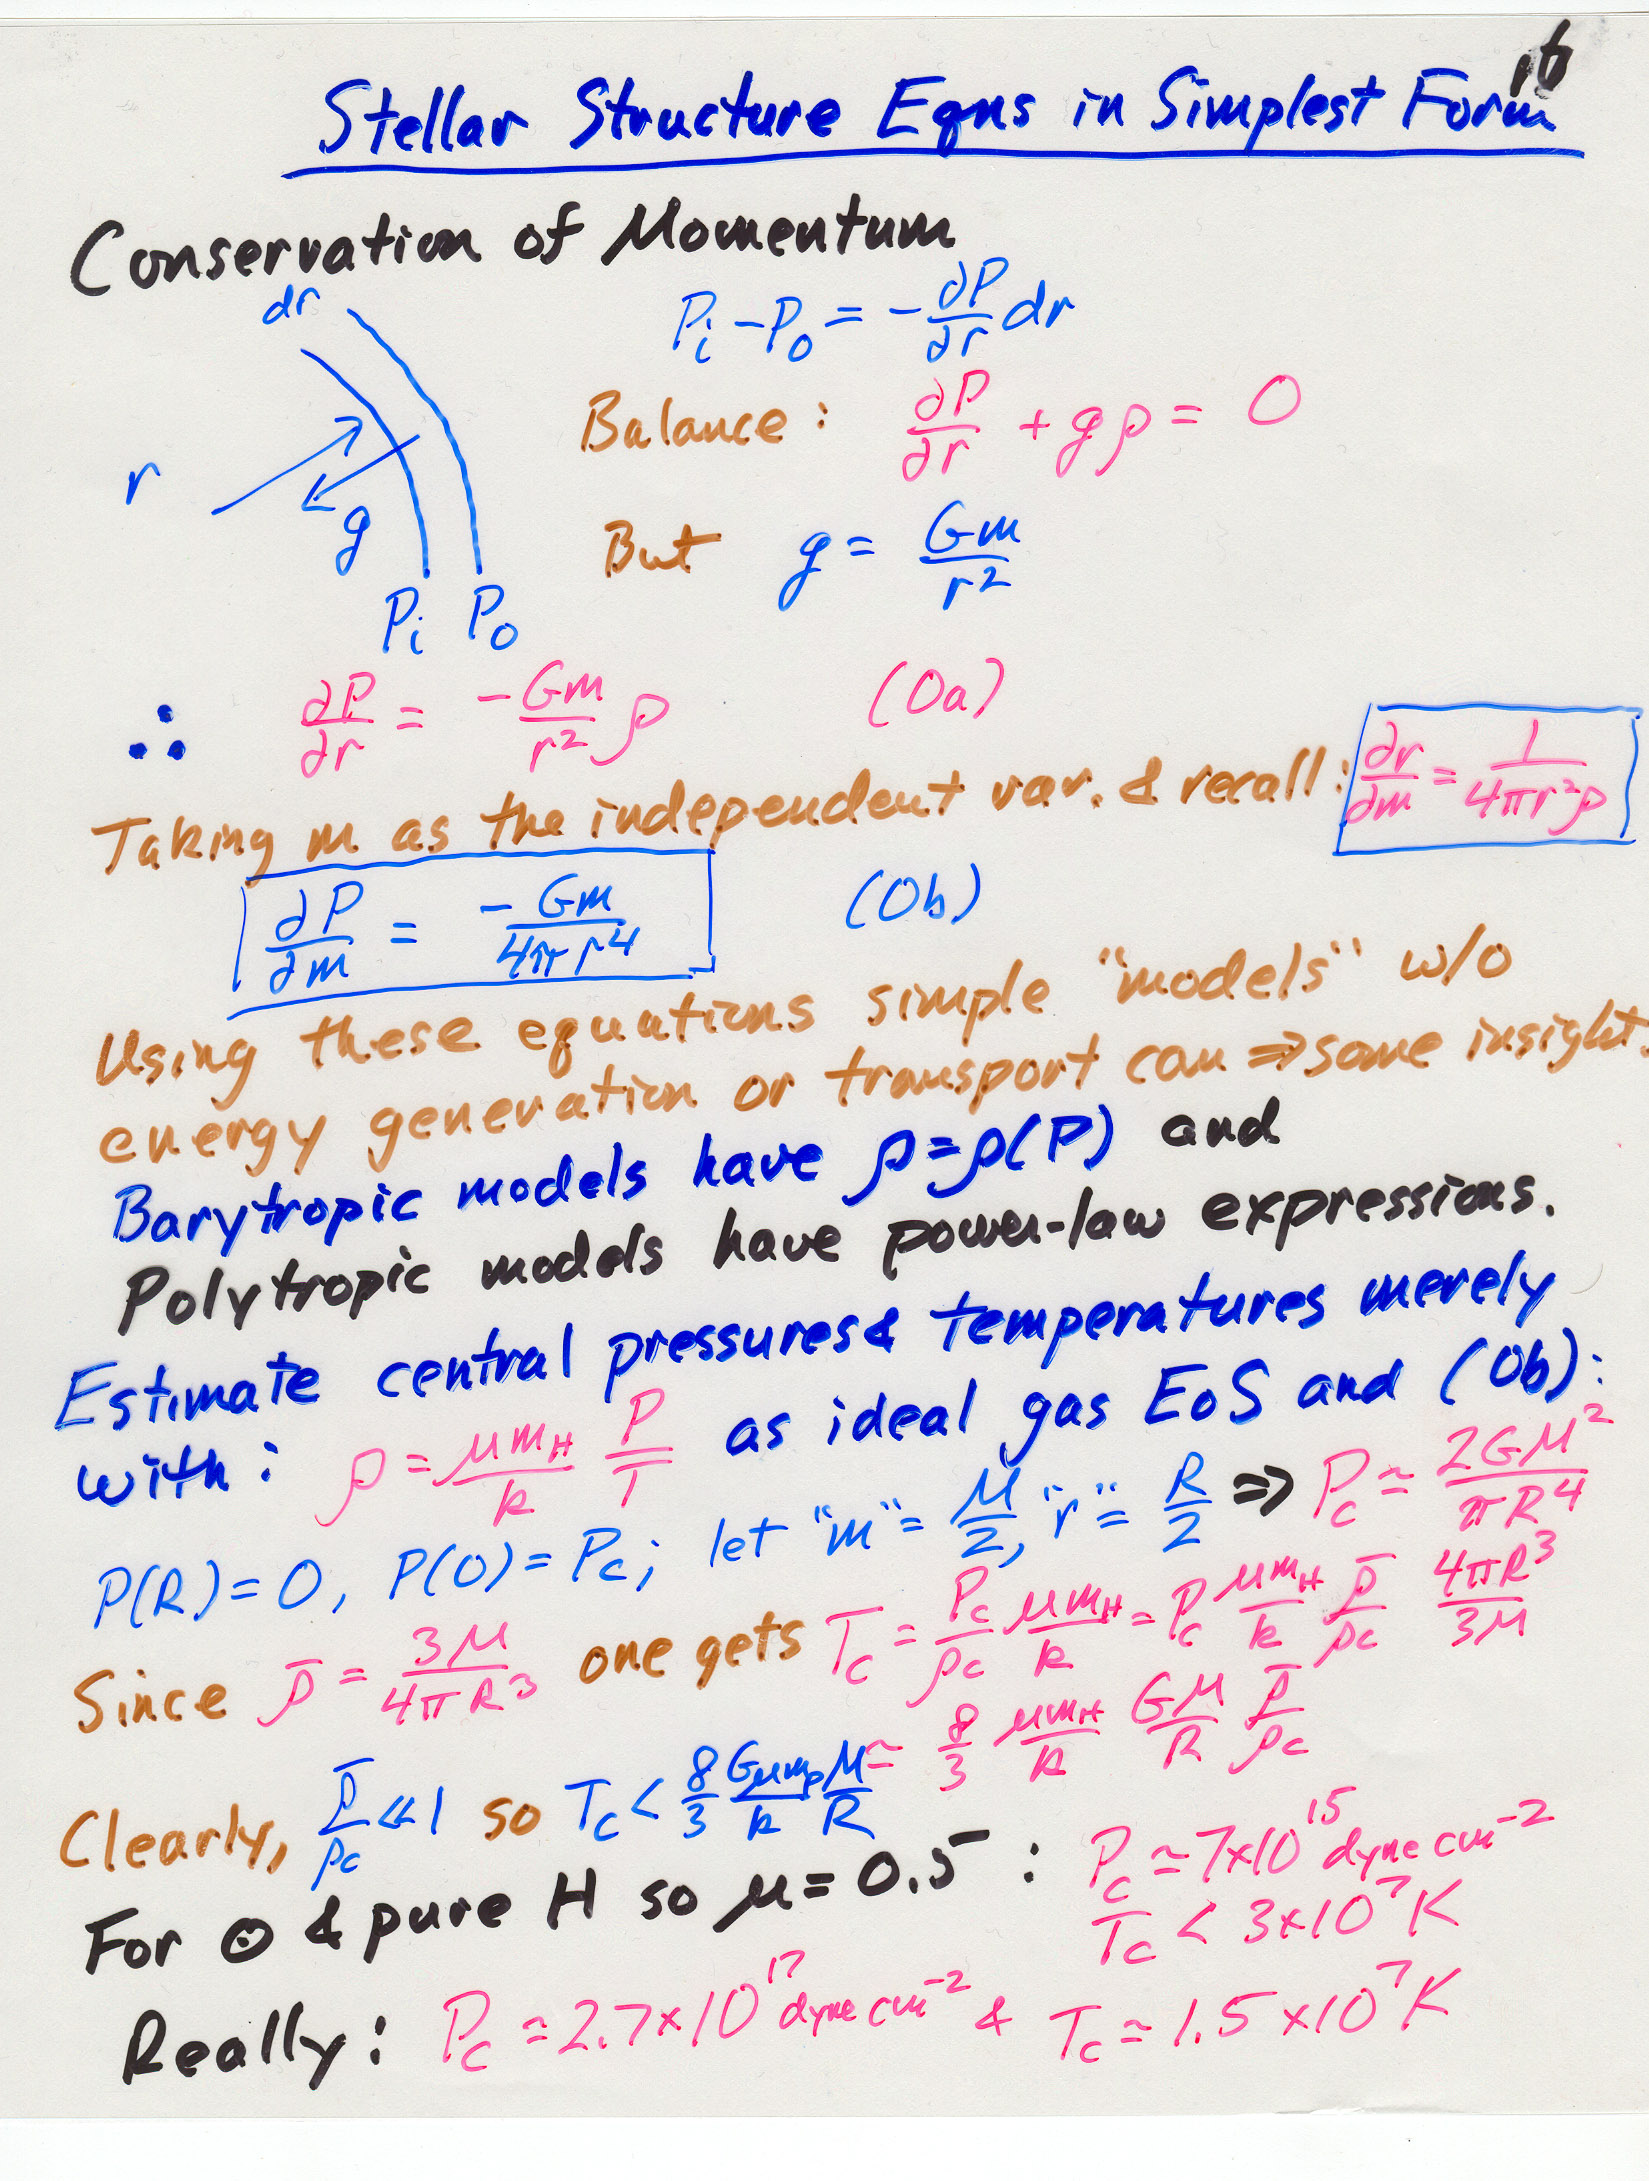 16
Stellar Structure Eqns in Simplest Form
Conservation of Momentum
dr
P_i - P_o = -∂P/∂r dr
Balance: ∂P/∂r + gρ = 0
r
g
But g = Gm/r²
P_i P_o
∴ ∂P/∂r = -Gm/r² ρ (0a)
Taking m as the independent var. & recall: ∂r/∂m = 1/4πr²ρ
∂P/∂m = -Gm/4πr⁴ (0b)
Using these equations simple "models" w/o
energy generation or transport can ⇒ some insight.
Barytropic models have ρ=ρ(P) and
Polytropic models have power-law expressions.
Estimate central pressures & temperatures merely
with: ρ = μm_H/k P/T as ideal gas EoS and (0b):
P(R)=0, P(0)=P_c; let "m" = M/2, "r" = R/2 ⇒ P_c ≃ 2GM²/πR⁴
Since ρ̄ = 3M/4πR³ one gets T_c = P_c/ρ_c μm_H/k = P_c μm_H/k ρ̄/ρ_c 4πR³/3M
≃ 8/3 μm_H/k GM/R ρ̄/ρ_c
Clearly, ρ̄/ρ_c ≪ 1 so T_c < 8/3 Gμm_p/k M/R
For ⊙ & pure H so μ = 0.5: P_c ≃ 7×10¹⁵ dyne cm⁻²
T_c < 3×10⁷ K
Really: P_c ≃ 2.7×10¹⁷ dyne cm⁻² & T_c ≃ 1.5×10⁷ K